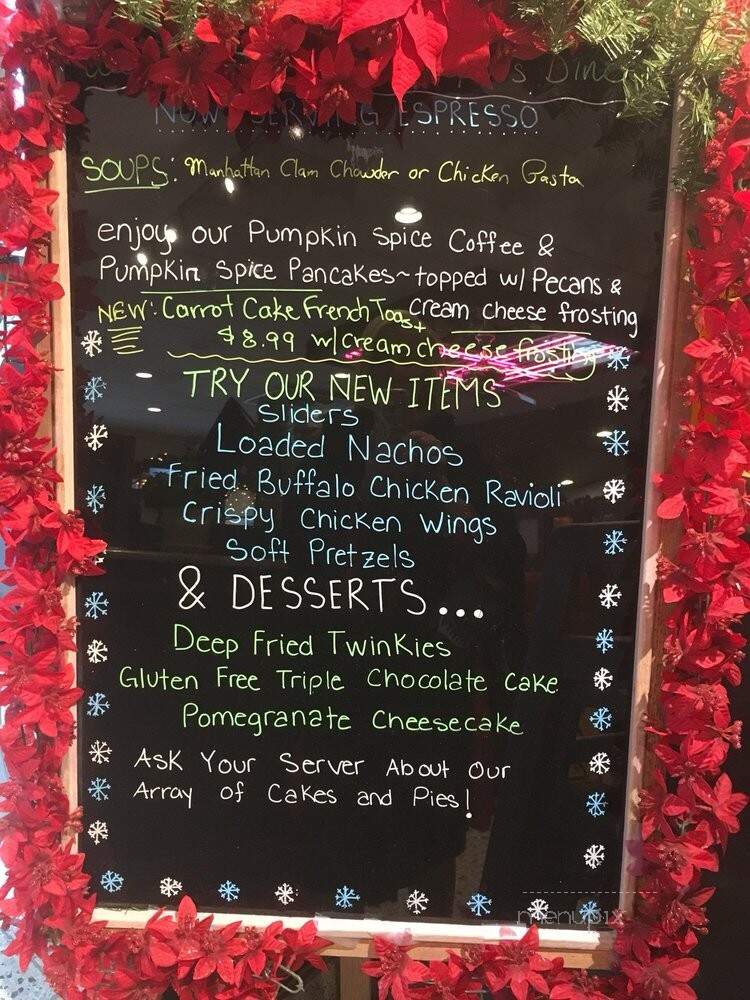 's Dine
NOW SERVING ESPRESSO
SOUPS: Manhattan Clam Chowder or Chicken Pasta
enjoy our Pumpkin Spice Coffee &
Pumpkin Spice Pancakes~topped w/ Pecans &
cream cheese frosting
NEW: Carrot Cake French Toast
$8.99 w/cream cheese frosting
TRY OUR NEW ITEMS
Sliders
Loaded Nachos
Fried Buffalo Chicken Ravioli
Crispy Chicken Wings
Soft Pretzels
& DESSERTS...
Deep Fried Twinkies
Gluten Free Triple Chocolate Cake
Pomegranate Cheesecake
Ask Your Server About Our
Array of Cakes and Pies!
menupix